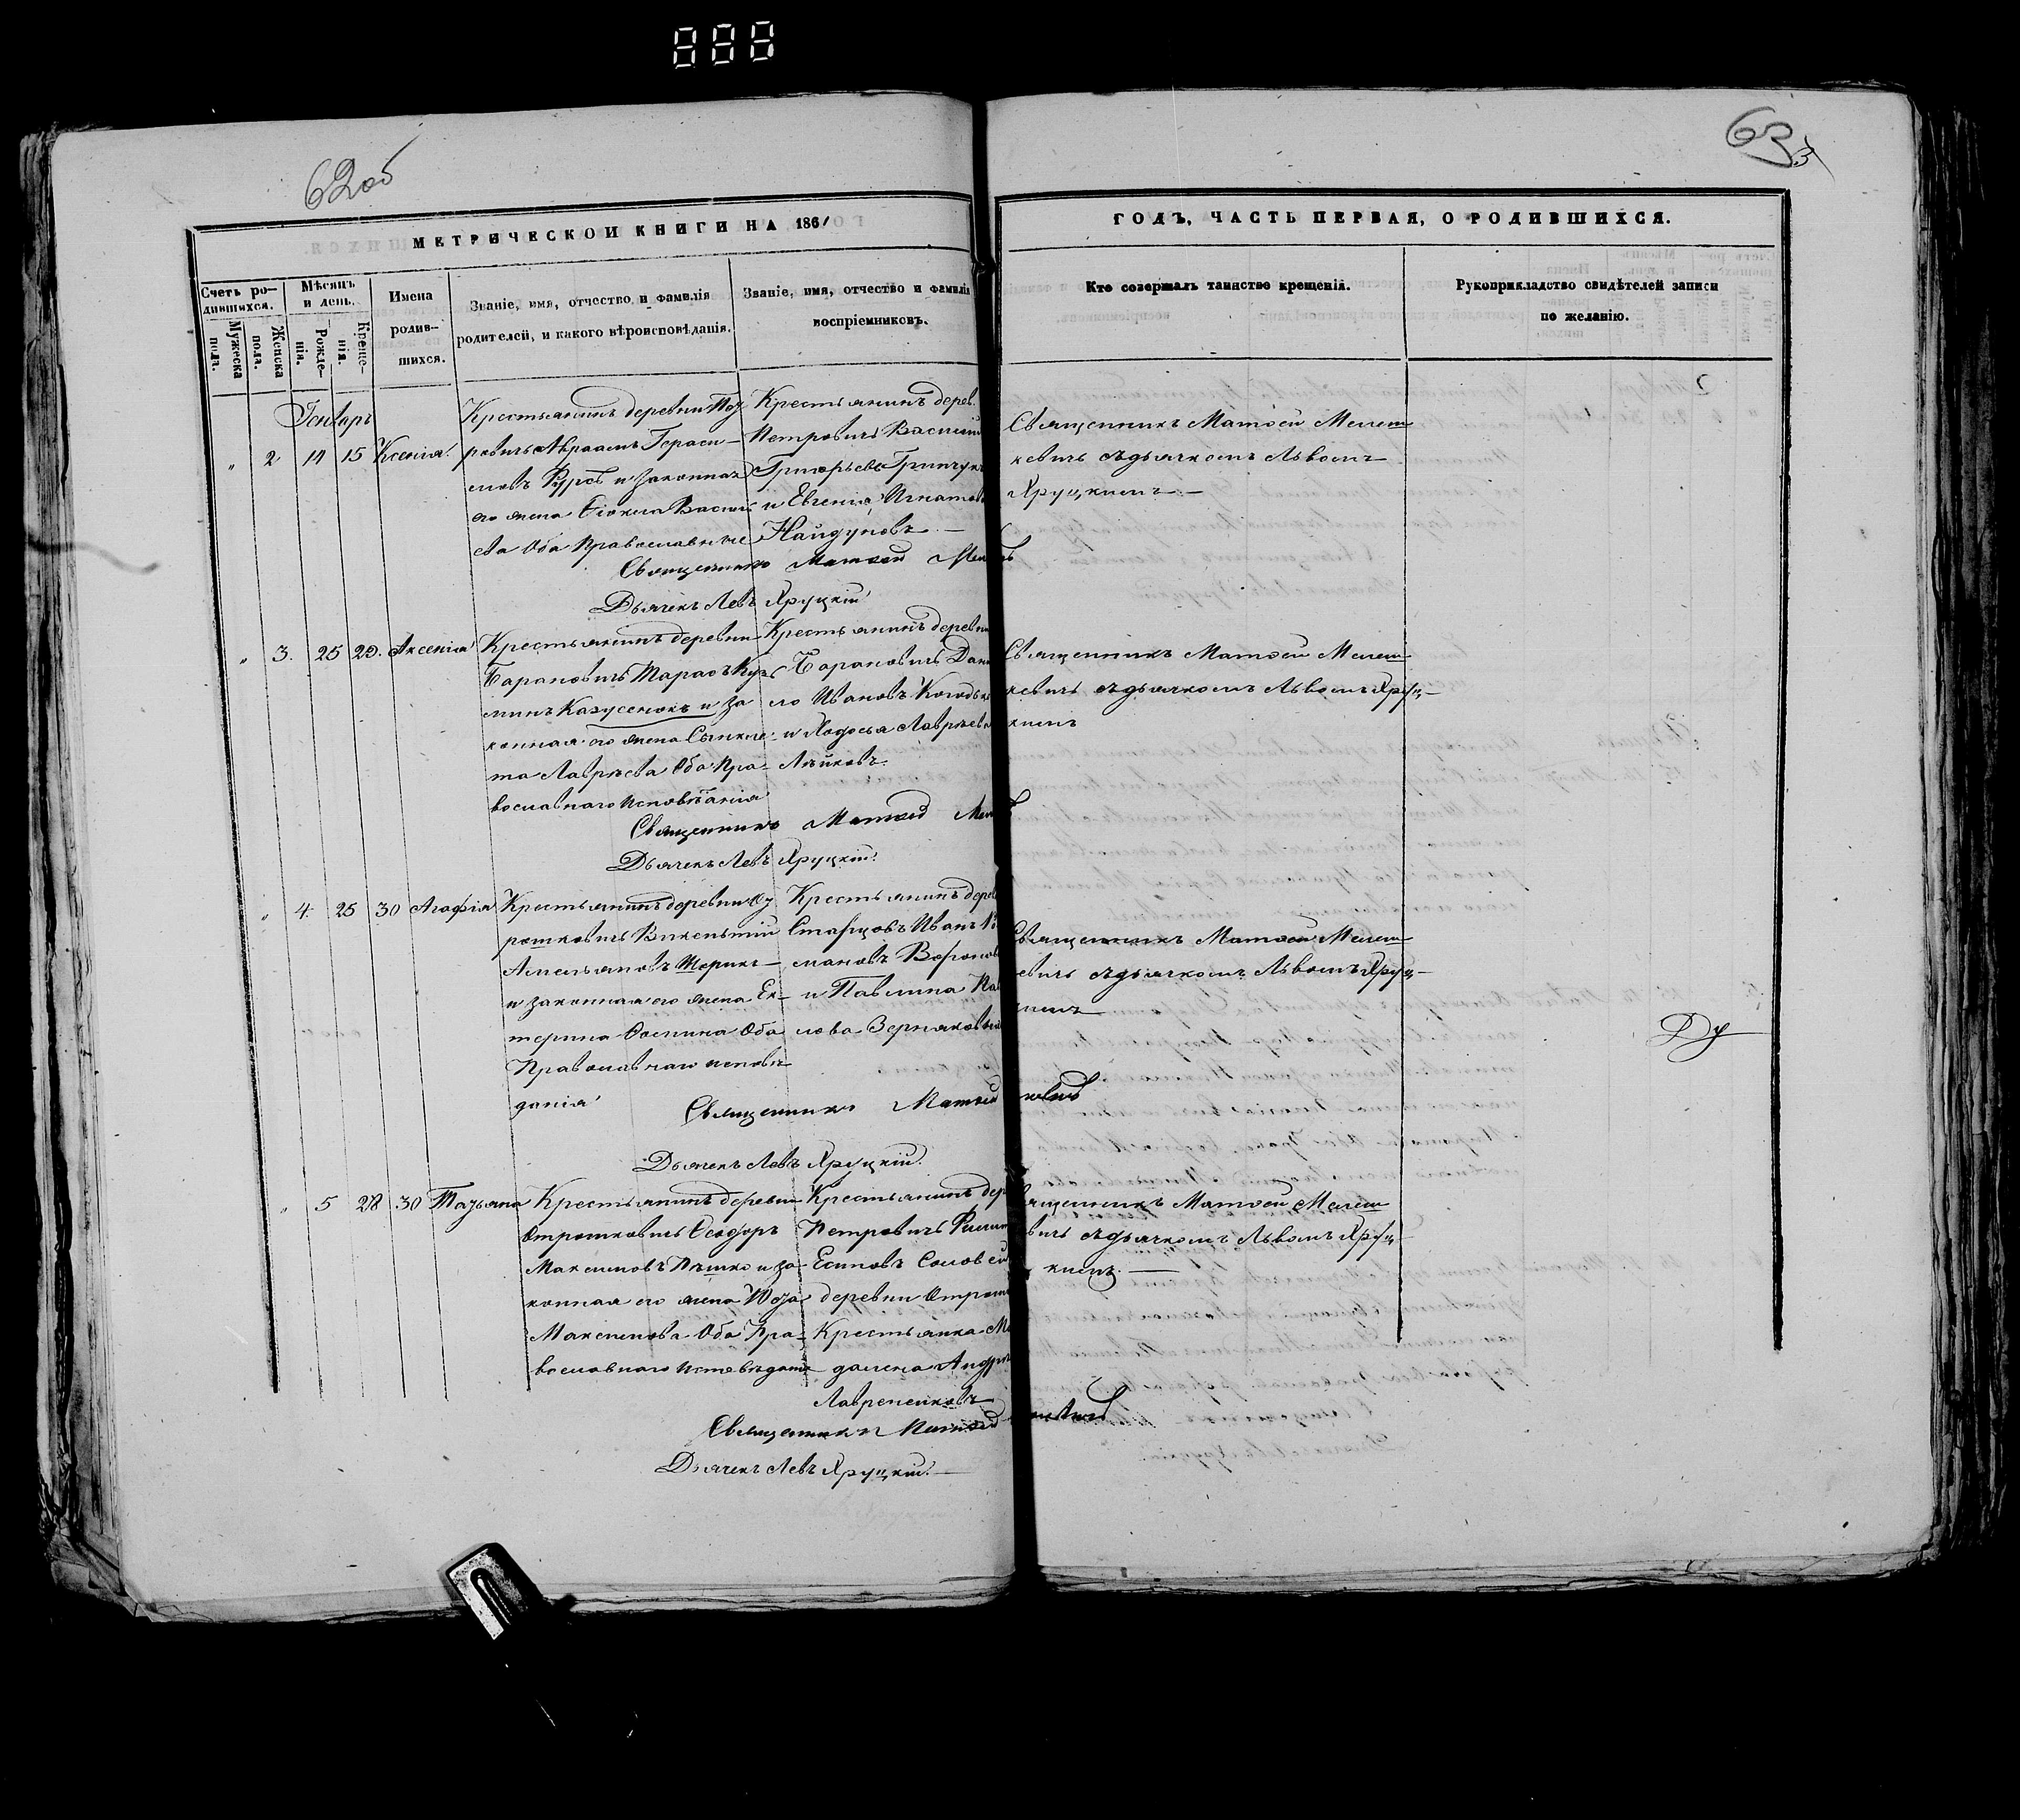 62об
63
МЕТРИЧЕСКОЙ КНИГИ НА 1861
ГОДЪ, ЧАСТЬ ПЕРВАЯ, О РОДИВШИХСЯ.
Счетъ ро-
дившихся.
Мужеска
пола.
Женска
пола.
Мѣсяцъ
и день.
Рожде-
нія.
Креще-
нія.
Имена
родив-
шихся.
Званіе, имя, отчество и фамилія
родителей, и какого вѣроисповѣданія.
Званіе, имя, отчество и фамилія
воспріемниковъ.
Кто совершалъ таинство крещенія.
Рукоприкладство свидѣтелей записи
по желанію.
Генварь
2 14 15 Ксенія
Крестьянинъ деревни
Авраамъ Гераси-
мовъ и законная
его жена Ѳіокла Василь
ева Оба Православные
Крестьянинъ дерев.
Петровичь Василий
Григорьевъ
и Евгенія Игнатова
Найдуновъ
Священникъ Матѳей
кевичь съ дьячкомъ Львомъ
Хруцкимъ
Священникъ Матѳей
Дьячекъ Левъ Хруцкій
3. 25 29. Аксенія
Крестьянинъ деревни
Барановичь Тарасъ Кузь
минъ и за
конная его жена Сынкле
та Лаврѣева Оба Пра-
вославнаго Исповѣданія
Крестьянинъ деревни
Барановичь Дани
ло Ивановъ
и Ходосья Лаврѣева
Священникъ Матѳей
кевичь съ дьячкомъ Львомъ Хруц-
кимъ
Священникъ Матѳей
Дьячекъ Левъ Хруцкій.
4. 25 30 Агафія
Крестьянинъ деревни
рошковичь Викентий
Амельяновъ
и законная его жена Ека-
терина Осипина Оба
Православнаго исповѣ
данія
Крестьянинъ дерев
Иванъ
мановъ
и Павлина Пав
лова
Священникъ Матѳей
кевичь съ дьячкомъ Львомъ Хруц-
кимъ
Священникъ Матѳей
Дьячекъ Левъ Хруцкій.
5 28 30 Татьяна
Крестьянинъ деревни
Отрошковичь Ѳеодоръ
Максимовъ и за-
конная его жена
Максимова Оба Пра-
вославнаго Исповѣданія
Крестьянинъ дер
Петровичь
Есиповъ Соловей
деревни
Крестьянка Маг
далена Андрѣ
Священникъ Матѳей
кевичь съ дьячкомъ Львомъ Хруц
кимъ.
Священникъ Матѳей
Дьячекъ Левъ Хруцкій.